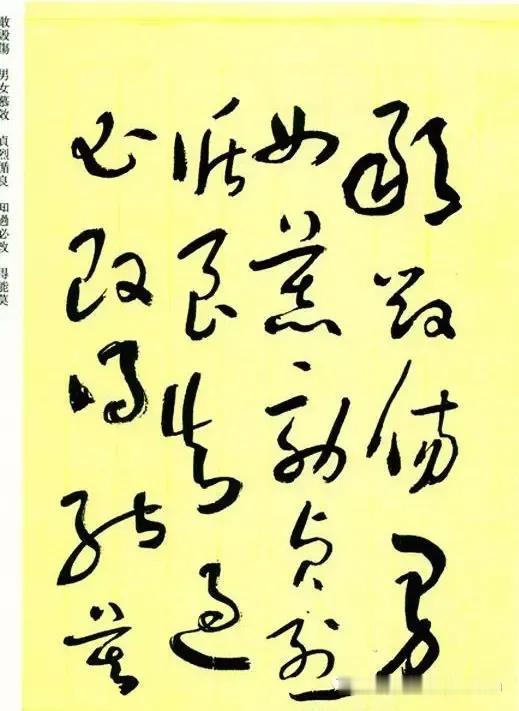 敢毀傷男
女慕効貞烈
循良知過
必改得能莫
敢毀傷　男女慕效　貞烈循良　知過必改　得能莫